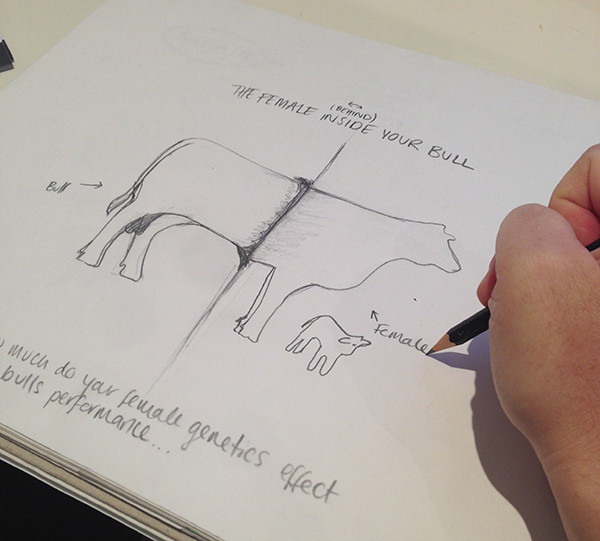 (BEHIND)
THE FEMALE INSIDE YOUR BULL
Bull
Female
much do your female genetics effect
bulls performance...